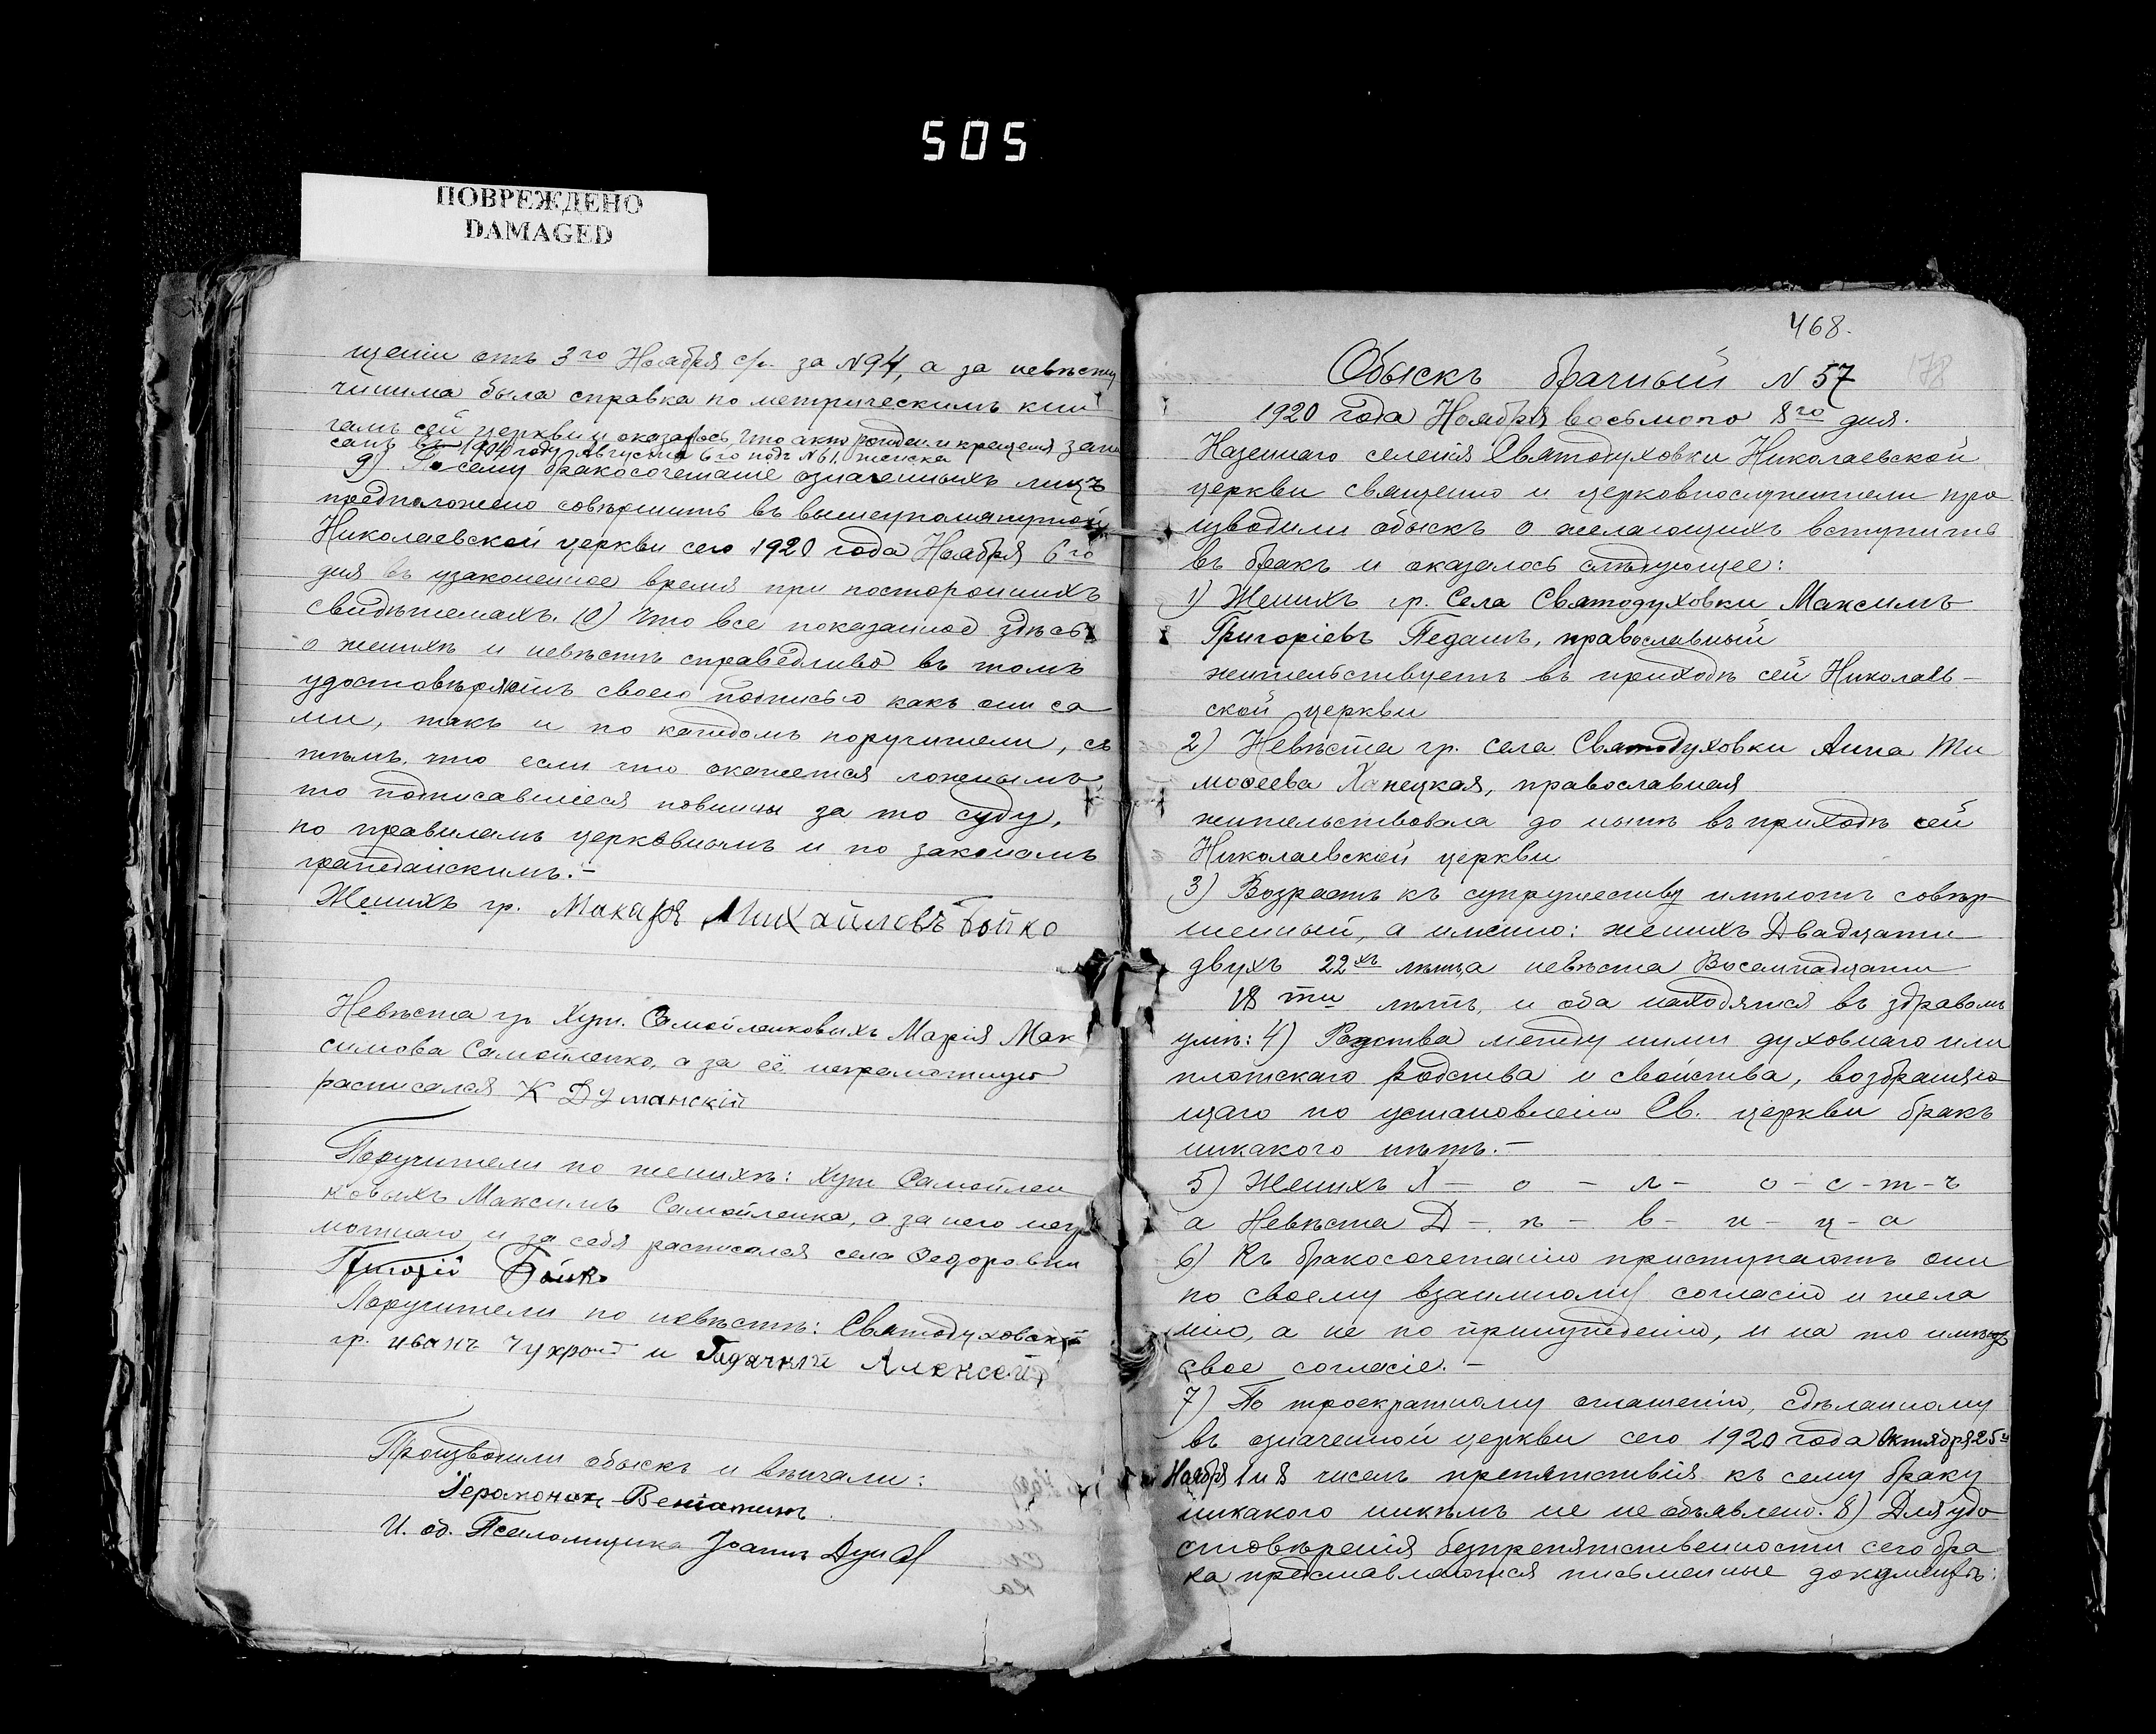 505
ПОВРЕЖДЕНО
DAMAGED
щеніи отъ 3го Ноября с/г. за №94, а за невѣсту
чинима была справка по метрическимъ кни
гамъ сей церкви и оказалось, что актъ рожден. и крещенія запи
санъ въ 1904 году Августа 6го подъ №61. женска
9) Посему бракосочетаніе означенныхъ лицъ
предположено совершить въ вышеупомянутой
Николаевской церкви сего 1920 года Ноября 6го
дня въ узаконенное время при постороннихъ
свидѣтеляхъ. 10) Что все показанное здѣсь
о женихѣ и невѣстѣ справедливо въ томъ
удостовѣряютъ своею подписью какъ они са
ми, такъ и по каждомъ поручители, съ
тѣмъ, что если что окажется ложнымъ,
то подписавшіеся повинны за то суду,
по правиламъ церковнымъ и по законамъ
гражданскимъ.-
Женихъ гр. Макаръ Михайловъ Бойко
Невѣста гр Хут. Самойленковыхъ Марія Мак
симова Самойленко, а за её неграмотную
расписался К Думанскій
Поручители по женихѣ: Хут Самойлен
ковыхъ Максимъ Самойленка, а за него негра
мотнаго, и за себя расписался села Федоровки
Григорій Бойко
Поручители по невѣстѣ: Святодуховскій
гр. иванъ Чухрой и Гидачный Алексей
Производили обыскъ и вѣнчали:
Іеромонах Веніаминъ
И. об. Псаломщика Іоаннъ
468.
178
Обыскъ брачный № 57
1920 года Ноября восьмого 8го дня.
Казеннаго селенія Святодуховки Николаевской
церкви священно и церковнослужители про
изводили обыскъ о желающихъ вступить
въ бракъ и оказалось слѣдующее:
1) Женихъ гр. Села Святодуховки Максимъ
Григоріевъ Педашъ, православный
жительствуетъ въ приходѣ сей Николаев-
ской церкви
2) Невѣста гр. села Святодуховки Анна Ти
мофеева Ханецкая, православная
жительствовала до нынѣ въ приходѣ сей
Николаевской церкви
3) Возрастъ къ супружеству имѣютъ совер-
шенный, а именно: женихъ Двадцати
двухъ 22хъ лѣтъ, а невѣста Восемнадцати
18 ти лѣтъ, и оба находятся въ здравомъ
умѣ: 4) Родства между ними духовнаго или
плотскаго родства и свойства, возбраняю
щаго по установленію Св. церкви бракъ
никакого нѣтъ.-
5) Женихъ Х - о - л - о - с - т - ъ
а Невѣста Д - ѣ - в - и - ц - а
6) Къ бракосочетанію приступаютъ они
по своему взаимному согласію и жела
нію, а не по принужденію, и на то имѣютъ
свое согласіе.-
7) По троекратному оглашенію, сдѣланному
въ означенной церкви сего 1920 года Октября 25 и
Ноября 1 и 8 числъ препятствія къ сему браку
никакого никѣмъ не не объявлено. 8) Для удо
стовѣренія безпрепятственности сего бра
ка представляются письменные документы: